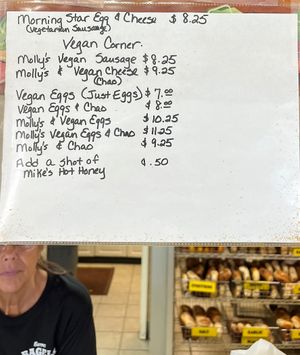 Morning Star Egg & Cheese $8.25
(Vegetarian Sausage)
Vegan Corner.
Molly's Vegan Sausage $8.25
Molly's & Vegan Cheese $9.25
(Chao)
Vegan Eggs (Just Eggs) $7.00
Vegan Eggs & Chao $8.00
Molly's & Vegan Eggs $10.25
Molly's Vegan Eggs & Chao $11.25
Molly's & Chao $9.25
Add a shot of $.50
Mike's Hot Honey
SALT
GARLIC